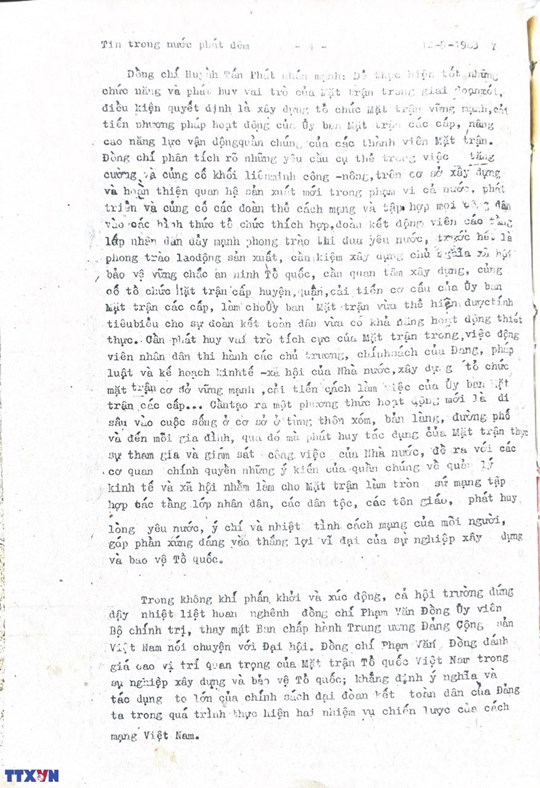 Tin trong nước phát đêm - 4 - 12-5-1983 Y
Đồng chí Huỳnh Tấn Phát nhấn mạnh: Để thực hiện tốt những
chức năng và phát huy vai trò của Mặt trận trong giai đoạn mới,
điều kiện quyết định là xây dựng tổ chức Mặt trận vững mạnh, cải
tiến phương pháp hoạt động của Ủy ban Mặt trận các cấp, nâng
cao năng lực vận động quần chúng của các thành viên Mặt trận.
Đồng chí phân tích rõ những yêu cầu cụ thể trong việc tăng
cường và củng cố khối liên minh công -nông, trên cơ sở xây dựng
và hoàn thiện quan hệ sản xuất mới trong phạm vi cả nước, phát
triển và củng cố các đoàn thể cách mạng và tập hợp mọi công dân
vào các hình thức tổ chức thích hợp, đoàn kết động viên các tầng
lớp nhân dân đẩy mạnh phong trào thi đua yêu nước, trước hết là
phong trào lao động sản xuất, cần kiệm xây dựng chủ nghĩa xã hội
bảo vệ vững chắc an ninh Tổ quốc, cần quan tâm xây dựng, củng
cố tổ chức Mặt trận cấp huyện, quận, cải tiến cơ cấu của Ủy ban
Mặt trận các cấp, làm cho Ủy ban Mặt trận vừa thể hiện được tính
tiêu biểu cho sự đoàn kết toàn dân vừa có khả năng hoạt động thiết
thực. Cần phát huy vai trò tích cực của Mặt trận trong việc động
viên nhân dân thi hành các chủ trương, chính sách của Đảng, pháp
luật và kế hoạch kinh tế -xã hội của Nhà nước, xây dựng tổ chức
mặt trận cơ sở vững mạnh, cải tiến cách làm việc của Ủy ban Mặt
trận các cấp... Cần tạo ra một phương thức hoạt động mới là đi
sâu vào cuộc sống ở cơ sở ở từng thôn xóm, bản làng, đường phố
và đến mỗi gia đình, qua đó mà phát huy tác dụng của Mặt trận thực
sự tham gia và giám sát công việc của Nhà nước, đề ra với các
cơ quan chính quyền những ý kiến của quần chúng về quản lý
kinh tế và xã hội nhằm làm cho Mặt trận làm tròn sứ mạng tập
hợp các tầng lớp nhân dân, các dân tộc, các tôn giáo, phát huy
lòng yêu nước, ý chí và nhiệt tình cách mạng của mỗi người,
góp phần xứng đáng vào thắng lợi vĩ đại của sự nghiệp xây dựng
và bảo vệ Tổ quốc.
Trong không khí phấn khởi và xúc động, cả hội trường đứng
dậy nhiệt liệt hoan nghênh đồng chí Phạm Văn Đồng Ủy viên
Bộ chính trị, thay mặt Ban chấp hành Trung ương Đảng Cộng sản
Việt Nam nói chuyện với Đại hội. Đồng chí Phạm Văn Đồng đánh
giá cao vị trí quan trọng của Mặt trận Tổ quốc Việt Nam trong
sự nghiệp xây dựng và bảo vệ Tổ quốc; khẳng định ý nghĩa và
tác dụng to lớn của chính sách đại đoàn kết toàn dân của Đảng
ta trong quá trình thực hiện hai nhiệm vụ chiến lược của cách
mạng Việt Nam.
TTXVN